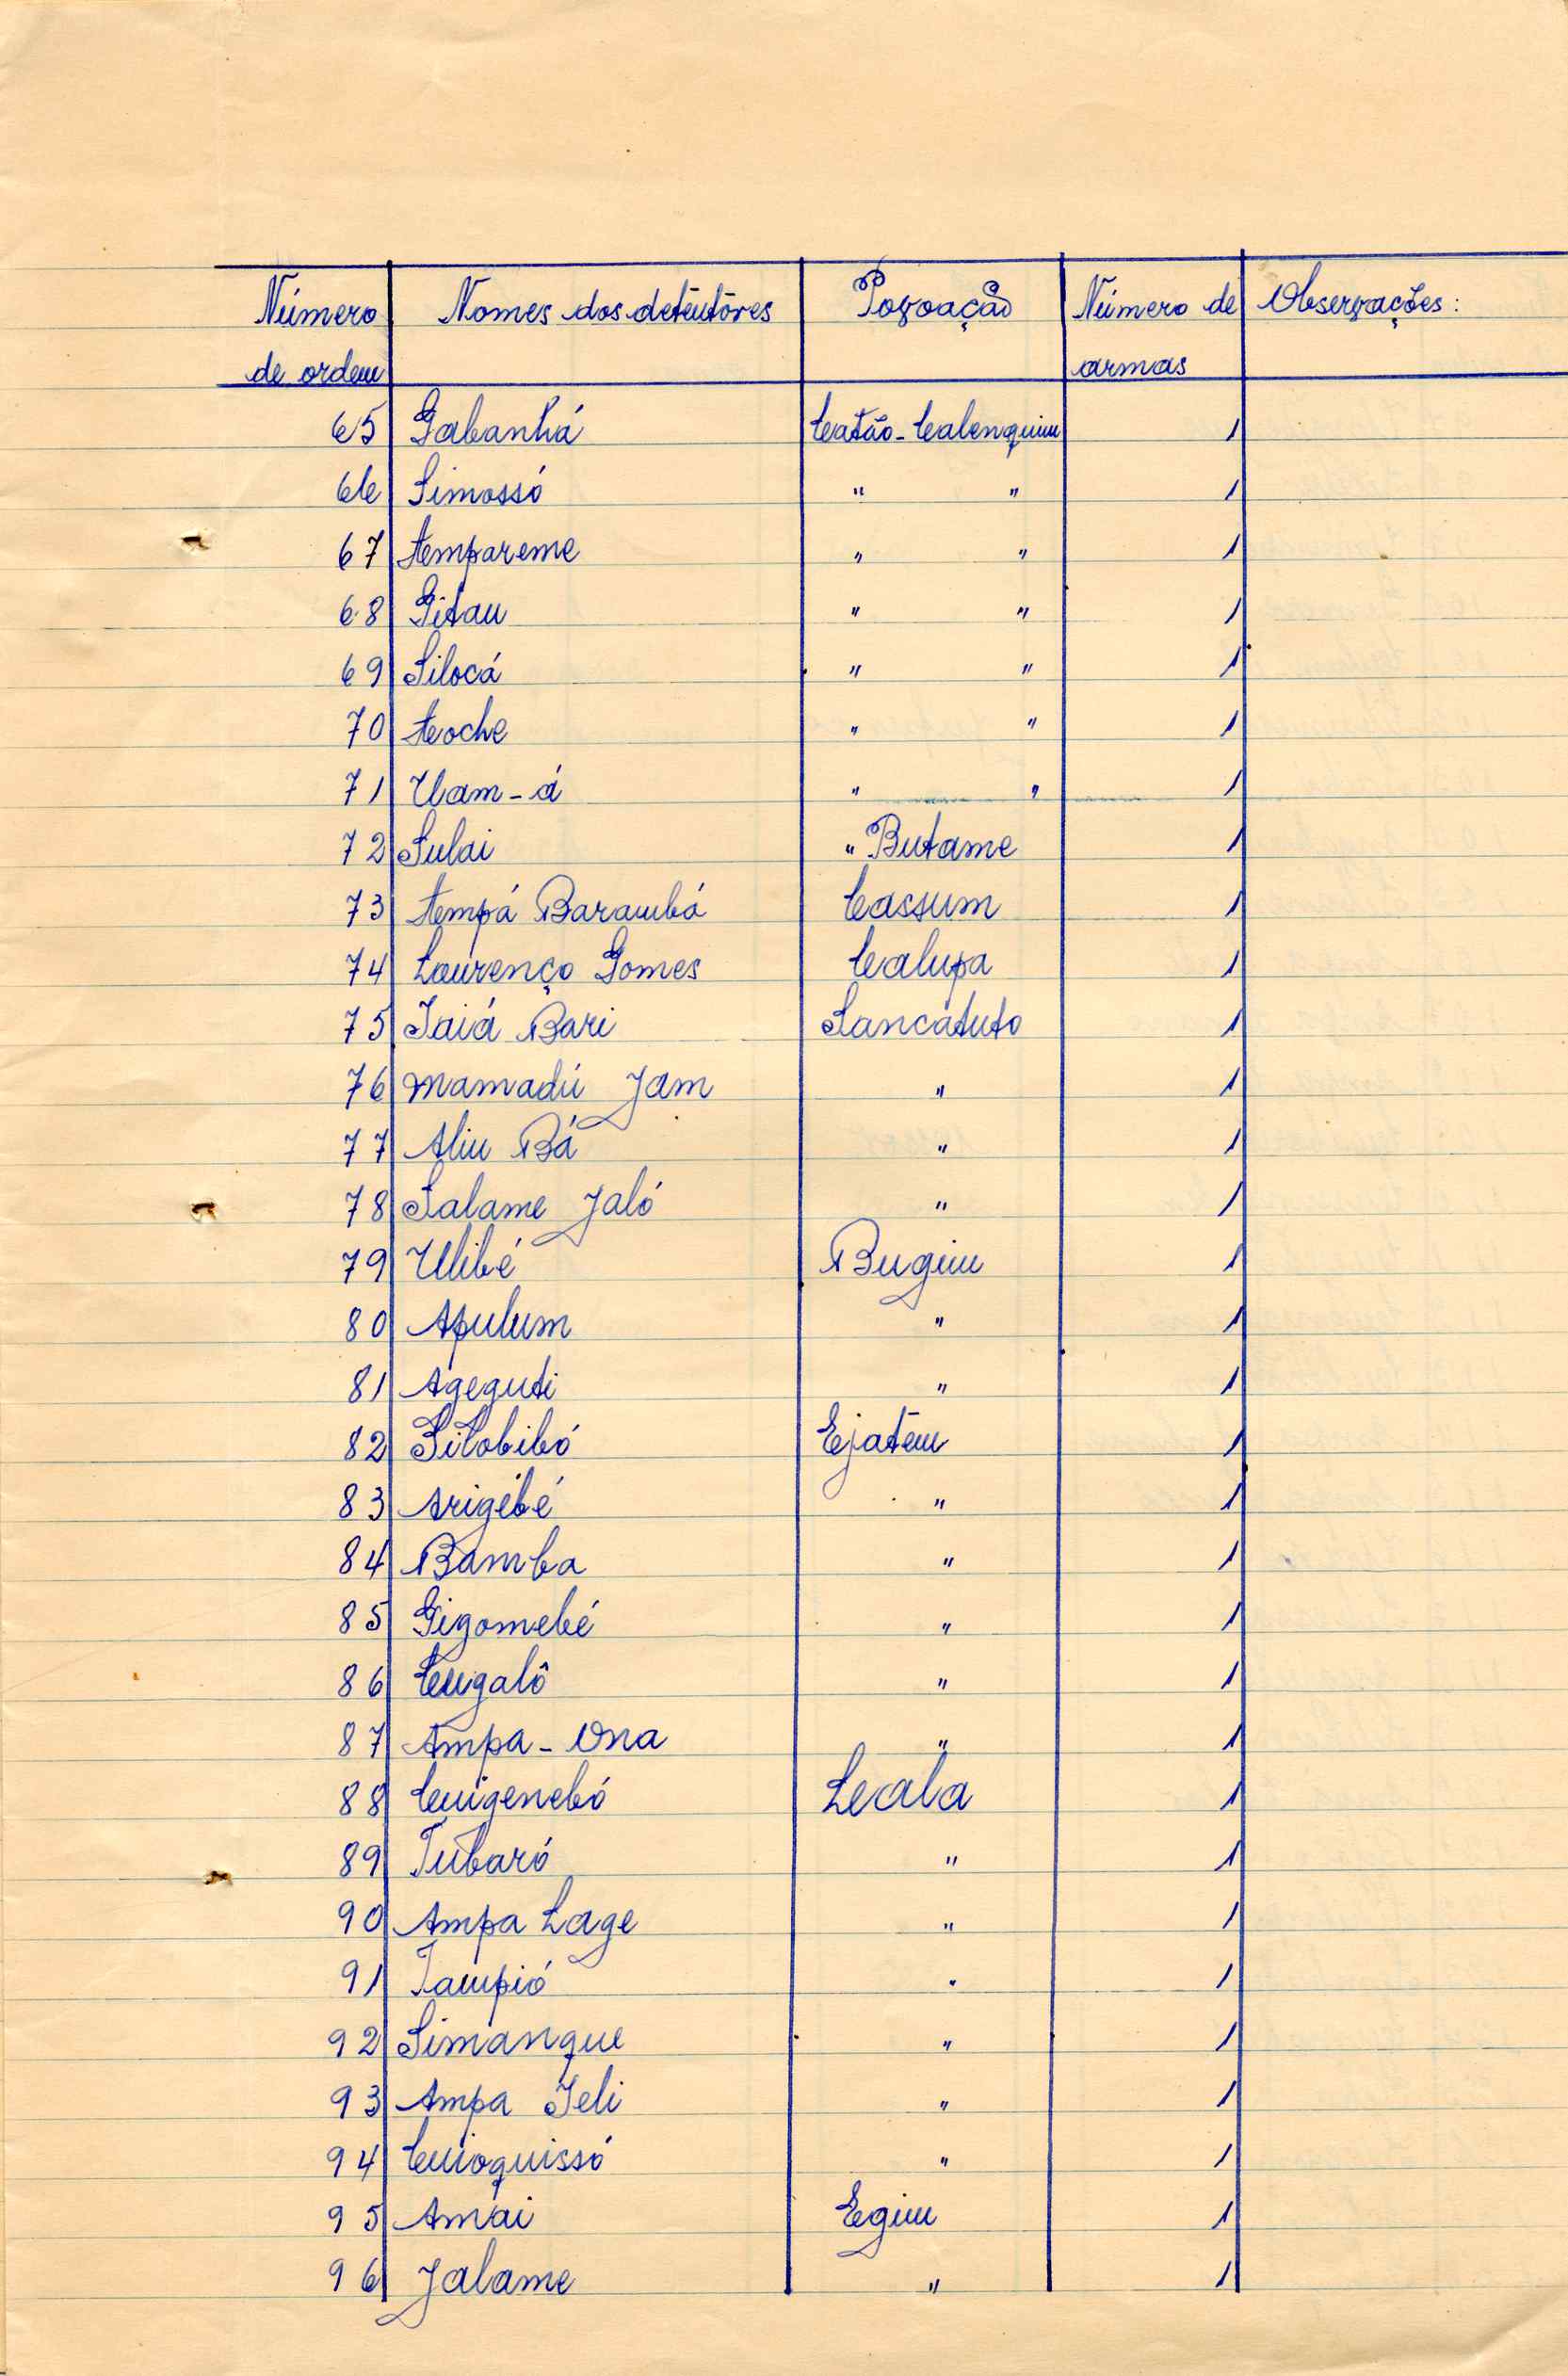 Número de ordem | Nomes dos detentores | Povoação | Número de armas | Observações:
65 Gabanhá Catão-Calenquim 1
66 Simossó " " 1
67 Tempareme " " 1
68 Gitau " " 1
69 Silocá " " 1
70 Teoche " " 1
71 Uam-á " " 1
72 Sulai " Butame 1
73 Tempá Barambá Cassum 1
74 Lourenço Gomes Calupa 1
75 Iaiá Bari Sancatuto 1
76 Mamadú Jam " 1
77 Aliu Bá " 1
78 Salame Jaló " 1
79 Ulibé Bugim 1
80 Apulum " 1
81 Ageguti " 1
82 Silobibó Ejatem 1
83 Arigébé " 1
84 Bamba " 1
85 Gigomebé " 1
86 Cugalô " 1
87 Ampa-Ona " 1
88 Cuigenebó Leala 1
89 Tubaró " 1
90 Ampa Lage " 1
91 Tampió " 1
92 Simanque " 1
93 Ampa Ieli " 1
94 Cuioquissó " 1
95 Amai Egim 1
96 Jalame " 1